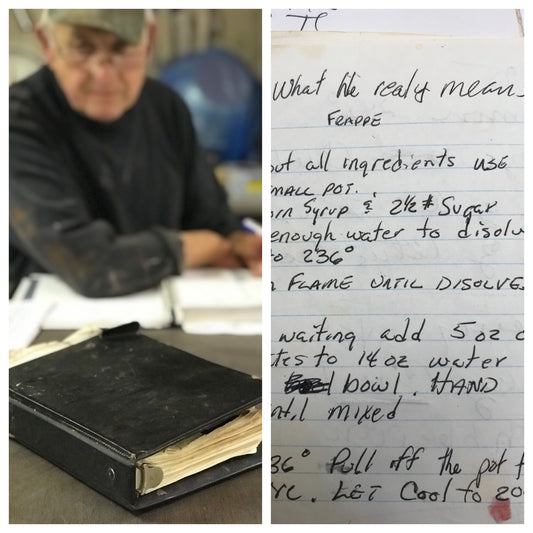 What He realy mean
FRAPPE
out all ingredients USE
SMALL POT.
rn Syrup & 2½ # Sugar
enough water to disolv
to 236°
FLAME UNTIL DISOLVE
waiting add 5 oz
tes to 14 oz water
bowl. HAND
ntil mixed
36° Pull off the pot f
LET Cool to 20